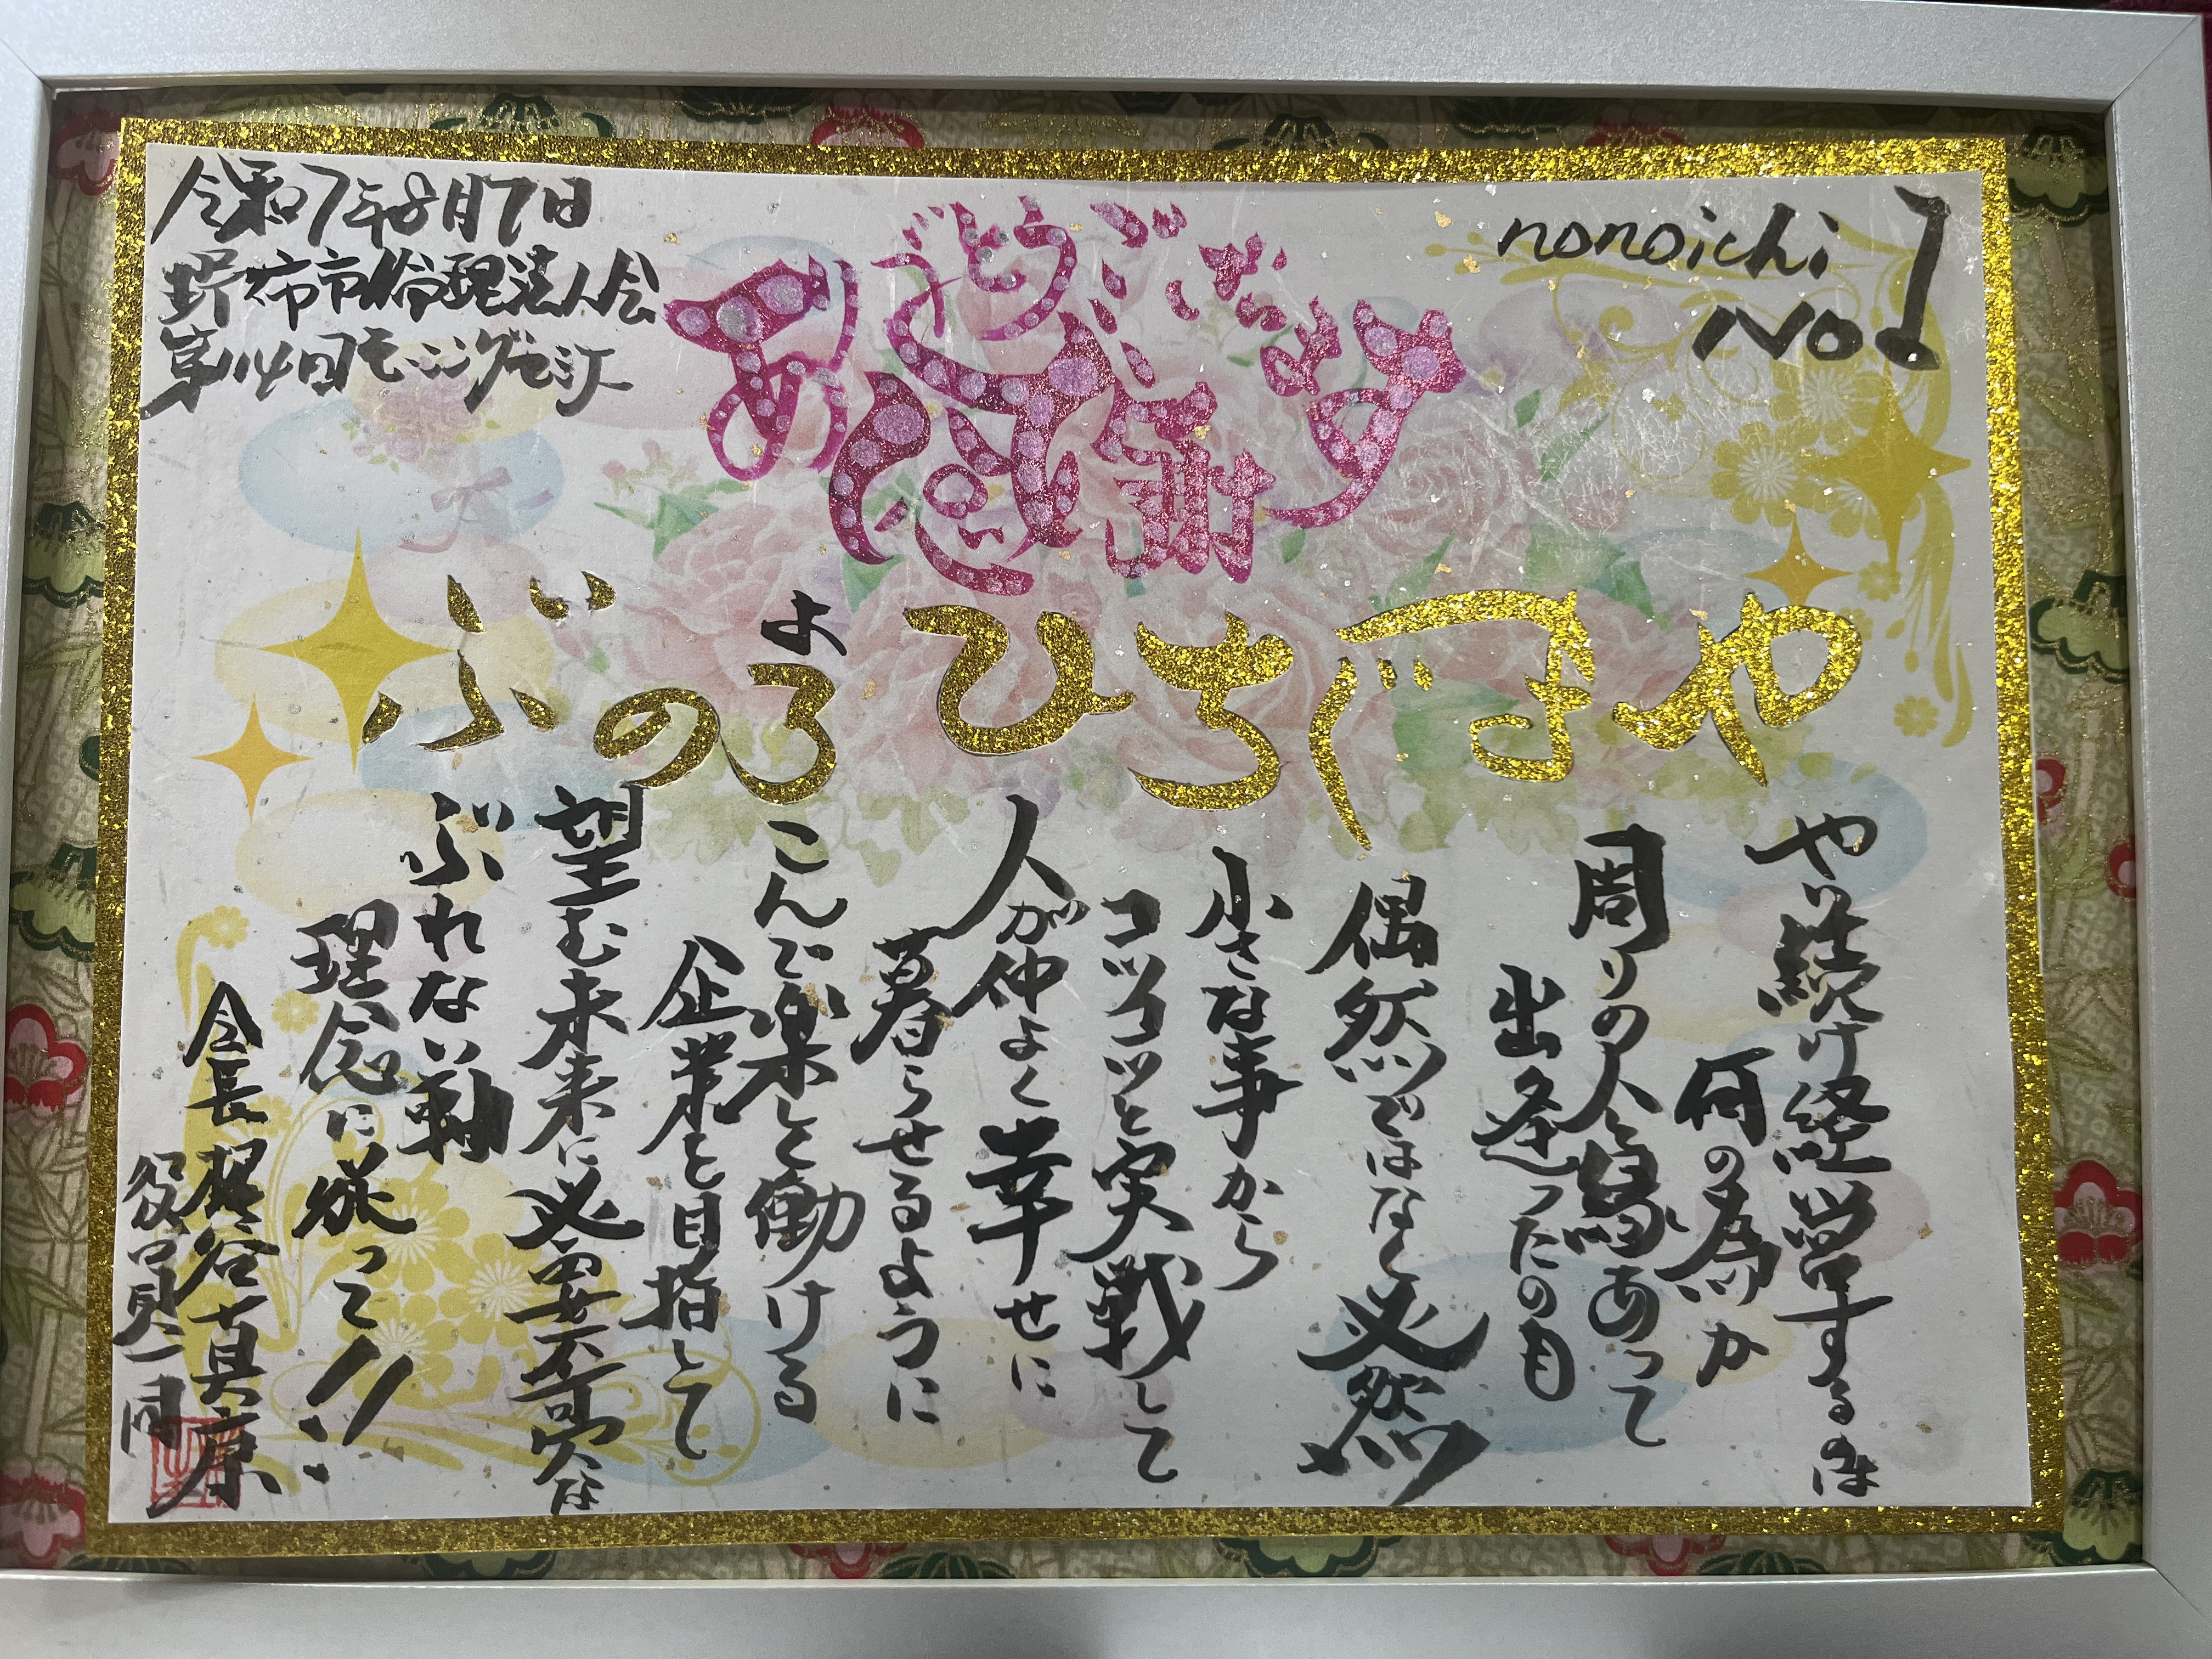 令和7年8月7日
野々市市倫理法人会
第114回モーニングセミナー
ありがとうございます
感謝
nonoichi
No.1
やまぐちひろのぶ
よ
やり続け経営するのは
何の為か
周りの人と縁あって
出逢ったのも
偶然ではなく必然
小さな事から
コツコツと実戦して
人が仲よく幸せに
暮らせるように
こんで楽しく働ける
企業を目指して
望む未来に必要不可欠な
ぶれない軸
理念に添って!!
会長 梶谷真康
役員一同